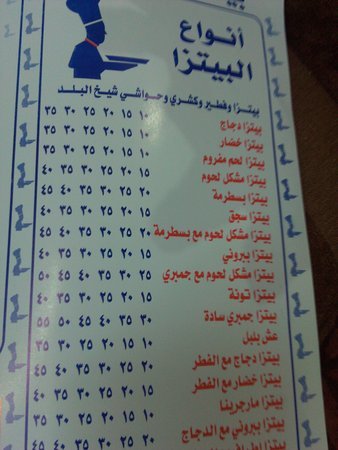 أنواع
البيتزا
بيتزا وفطير وكشري وحواشي شيخ البلد
بيتزا دجاج ١٠ ١٥ ٢٠ ٢٥ ٣٠ ٣٥
بيتزا خضار ١٠ ١٥ ٢٠ ٢٥ ٣٠ ٣٥
بيتزا لحم مفروم ١٠ ١٥ ٢٠ ٢٥ ٣٠ ٣٥
بيتزا مشكل لحوم ١٥ ٢٠ ٢٥ ٣٠ ٣٥ ٤٠
بيتزا بسطرمة ١٥ ٢٠ ٢٥ ٣٥ ٤٠ ٤٥
بيتزا سجق ١٥ ٢٠ ٢٥ ٣٠ ٣٥ ٤٠
بيتزا مشكل لحوم مع بسطرمة ١٥ ٢٠ ٢٥ ٣٥ ٤٠ ٤٥
بيتزا ببروني ١٠ ١٥ ٢٠ ٣٠ ٣٥ ٤٠
بيتزا مشكل لحوم مع جمبري ٢٠ ٢٥ ٣٥ ٤٠ ٤٥ ٥٠
بيتزا تونة ١٥ ٢٠ ٢٥ ٣٠ ٣٥ ٤٠
بيتزا جمبري سادة ٣٠ ٣٥ ٤٠ ٤٥ ٥٠ ٥٥
عش بلبل ١٠ ١٥ ٢٠ ٢٥ ٣٠ ٣٥
بيتزا دجاج مع الفطر ١٥ ٢٠ ٢٥ ٣٠ ٣٥ ٤٠
بيتزا خضار مع الفطر ١٠ ١٥ ٢٠ ٢٥ ٣٠ ٣٥
بيتزا مارجرينا ١٠ ١٥ ٢٠ ٢٥ ٣٠ ٣٥
بيتزا ببروني مع الدجاج
بيتزا